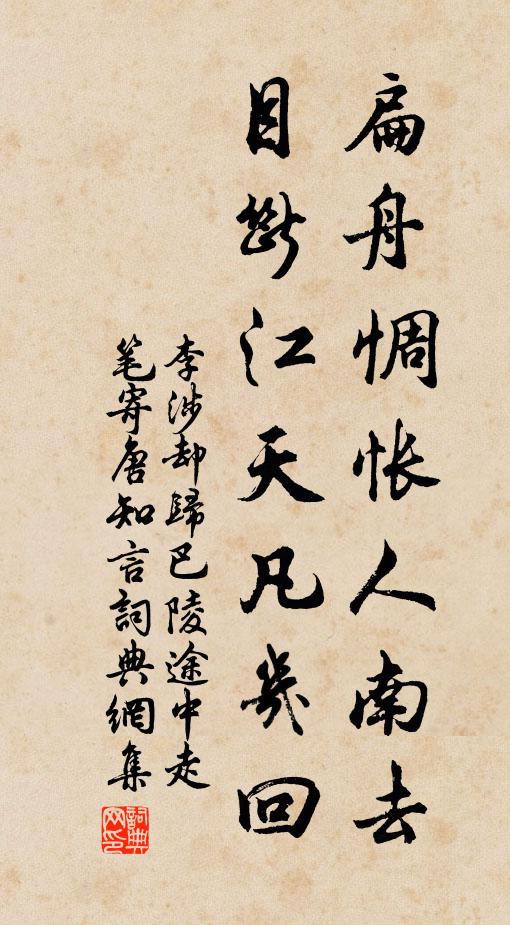 扁舟惆怅人南去
目断江天凡幾回
李涉却歸巴陵途中走
笔寄唐知言詞典網集
詞典
网印